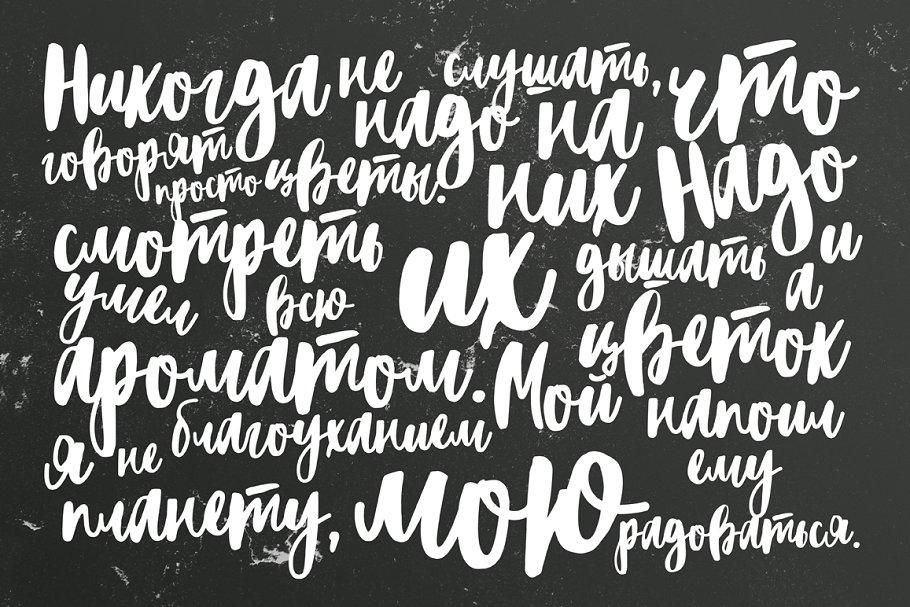 Никогда не слушать, что
надо на
говорят просто цветы. них Надо
смотреть их дышать и
умел всю а
ароматом. Мой цветок
я не благоуханием напоил
ему
планету, мою радоваться.